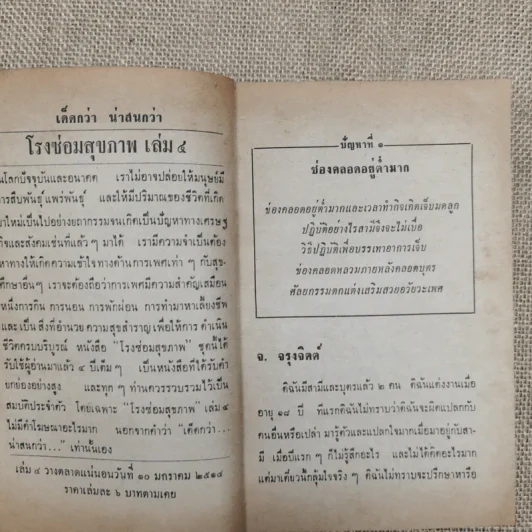 เด็ดกว่า น่าสนกว่า
โรงซ่อมสุขภาพ เล่ม ๔
นโลกปัจจุบันและอนาคต เราไม่อาจปล่อยให้มนุษย์มี
ารสืบพันธุ์ แพร่พันธุ์ และให้มีปริมาณของชีวิตที่เกิด
มาใหม่เป็นไปอย่างยถากรรมจนเกิดเป็นปัญหาทางเศรษฐ
กิจและสังคมเช่นที่แล้ว ๆ มาได้ เรามีความจำเป็นต้อง
หาทางให้เกิดความเข้าใจทางด้านการเพศเท่า ๆ กับสุข-
ศึกษาอื่นๆ เราจะต้องถือว่าการเพศมีความสำคัญเสมือน
หนึ่งการกิน การนอน การพักผ่อน การทำมาหาเลี้ยงชีพ
และเป็น สิ่งที่อำนวย ความสุขสำราญ เพื่อให้การ ดำเนิน
ชีวิตครบบริบูรณ์ หนังสือ “โรงซ่อมสุขภาพ” ชุดนี้ได้
รับใช้ผู้อ่านมาแล้ว ๔ ปีเต็มๆ เป็นหนังสือที่ได้รับคำ
ยกย่องอย่างสูง และทุก ๆ ท่านควรรวบรวมไว้เป็น
สมบัติประจำตัว โดยเฉพาะ “โรงซ่อมสุขภาพ” เล่ม ๔
ไม่มีคำโฆษณาอะไรมาก นอกจากคำว่า “เด็ดกว่า...
น่าสนกว่า...” เท่านั้นเอง
เล่ม ๔ วางตลาดแน่นอนวันที่ ๑๐ มกราคม ๒๕๑๔
ราคาเล่มละ ๖ บาทตามเคย
ปัญหาที่ ๑
ช่องคลอดอยู่ต่ำมาก
ช่องคลอดอยู่ต่ำมากและเวลาทำกิจเกิดเจ็บมดลูก
ปฏิบัติอย่างไรสามีจึงจะไม่เบื่อ
วิธีปฏิบัติเพื่อบรรเทาอาการเจ็บ
ช่องคลอดหลวมภายหลังคลอดบุตร
ศัลยกรรมตกแต่งเสริมสวยอวัยวะเพศ
จ. จรุงจิตต์
ดิฉันมีสามีและบุตรแล้ว ๒ คน ดิฉันแต่งงานเมื่อ
อายุ ๑๘ ปี ทีแรกดิฉันไม่ทราบว่าดิฉันจะผิดแปลกกับ
คนอื่นหรือเปล่า มารู้ตัวและแปลกใจมากเมื่อมาอยู่กับสา-
มี เมื่อปีแรก ๆ ก็ไม่รู้สึกอะไร และไม่ได้คิดอะไรมาก
แต่มาเดี๋ยวนี้กลุ้มใจจริง ๆ ดิฉันไม่ทราบจะปรึกษาหารือ